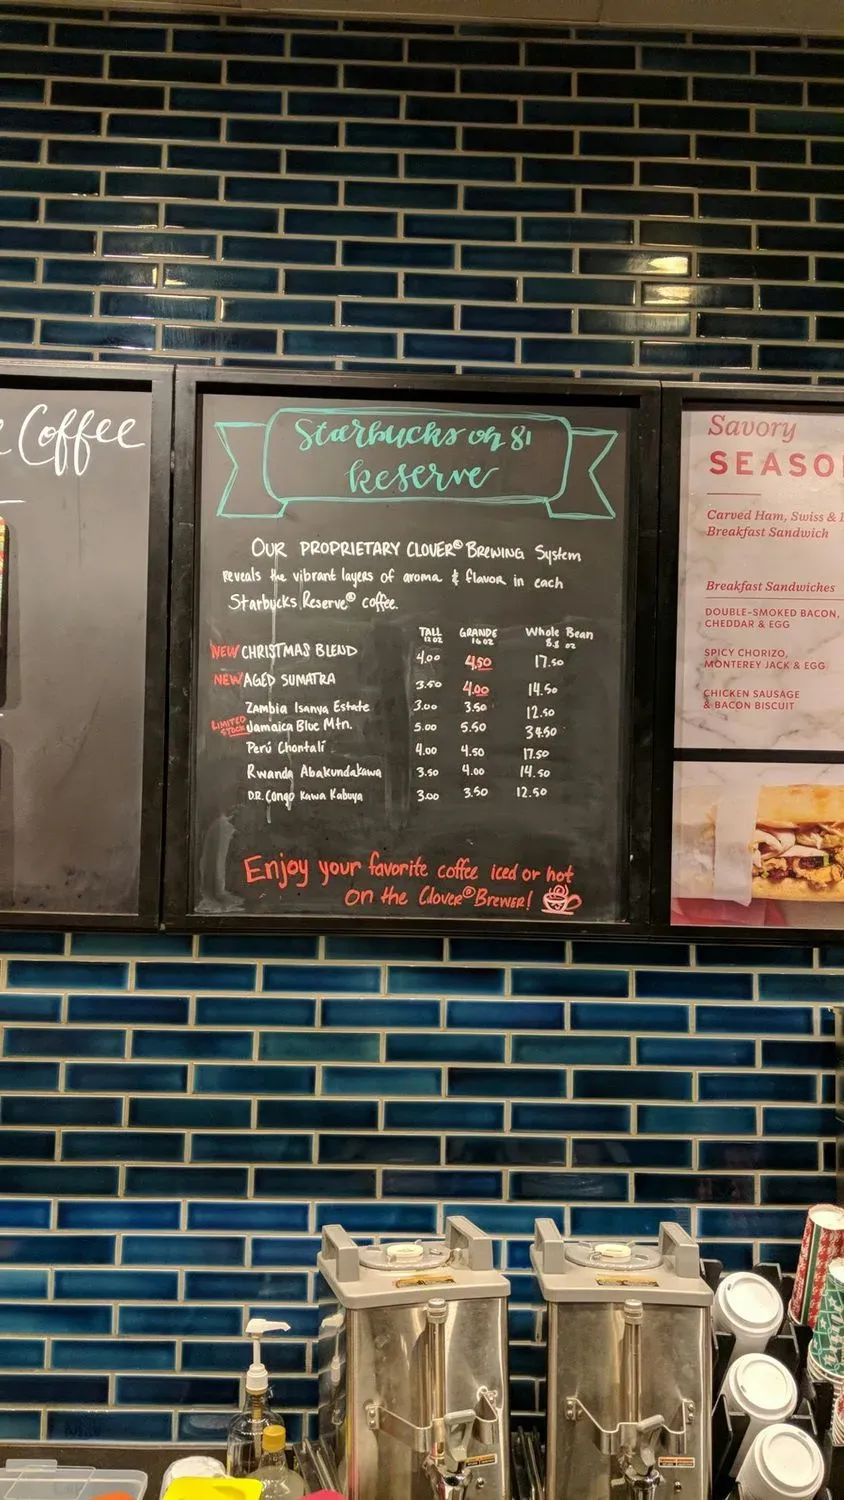 Coffee
Starbucks on 81
Reserve
OUR PROPRIETARY CLOVER® BREWING System
reveals the vibrant layers of aroma & flavor in each
Starbucks Reserve® coffee.
TALL GRANDE Whole Bean
12 oz 16 oz 8.8 oz
NEW CHRISTMAS BLEND 4.00 4.50 17.50
NEW AGED SUMATRA 3.50 4.00 14.50
Zambia Isanya Estate 3.00 3.50 12.50
LIMITED STOCK Jamaica Blue Mtn. 5.00 5.50 34.50
Perú Chontalí 4.00 4.50 17.50
Rwanda Abakundakawa 3.50 4.00 14.50
D.R. Congo Kawa Kabuya 3.00 3.50 12.50
Enjoy your favorite coffee iced or hot
on the Clover® Brewer!
Savory
SEASO
Carved Ham, Swiss &
Breakfast Sandwich
Breakfast Sandwiches
DOUBLE-SMOKED BACON,
CHEDDAR & EGG
SPICY CHORIZO,
MONTEREY JACK & EGG
CHICKEN SAUSAGE
& BACON BISCUIT